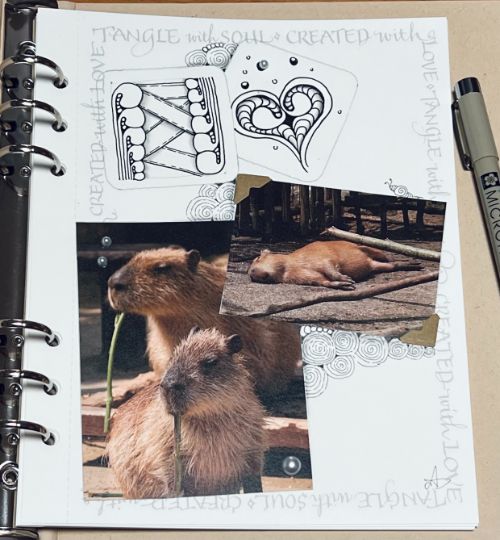 TANGLE with SOUL ⬦ CREATED with LOVE ⬦ TANGLE with
CREATED with LOVE
CREATED with LOVE
TANGLE with SOUL ⬦ CREATED with
MICRON